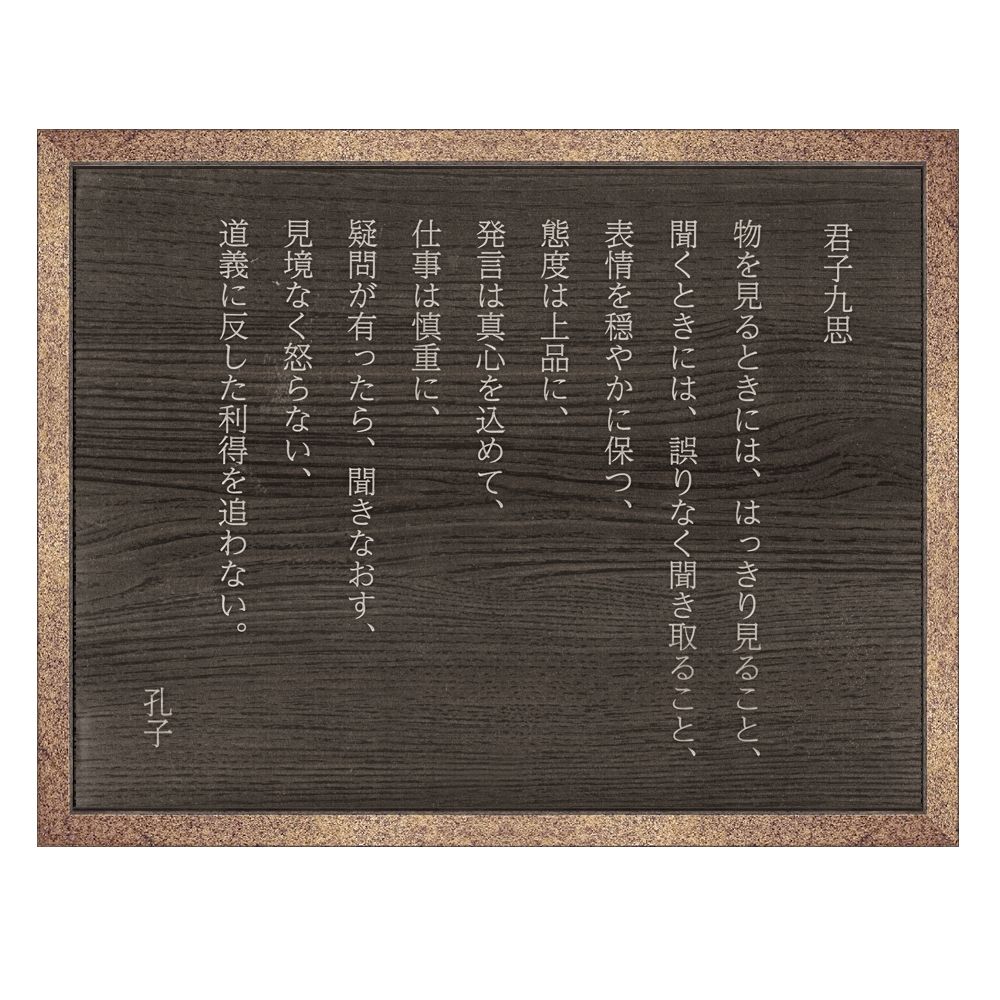 君子九思
物を見るときには、はっきり見ること、
聞くときには、誤りなく聞き取ること、
表情を穏やかに保つ、
態度は上品に、
発言は真心を込めて、
仕事は慎重に、
疑問が有ったら、聞きなおす、
見境なく怒らない、
道義に反した利得を追わない。
孔子